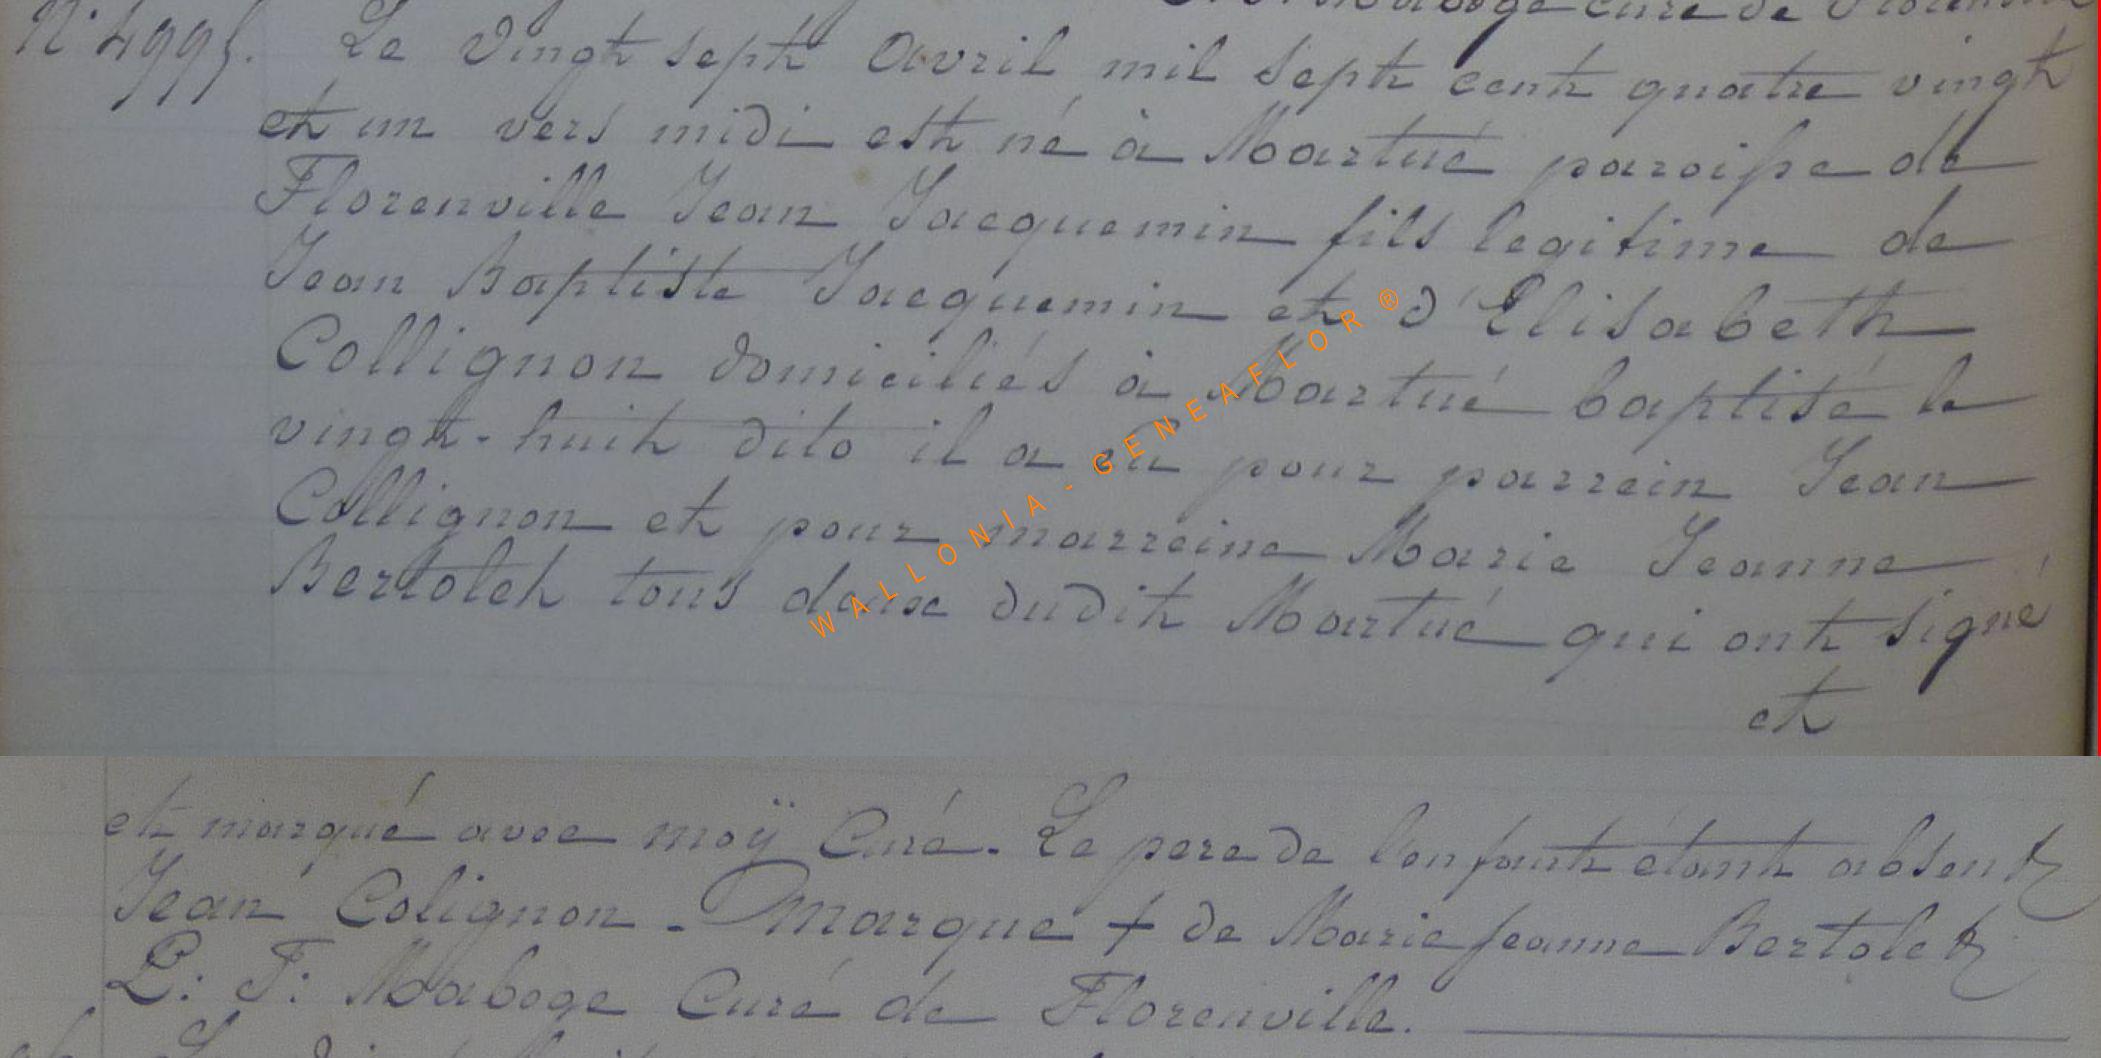 curé de
N° 4995. Le Vingt sept Avril mil sept cent quatre vingt
et un vers midi est né à Martué paroisse de
Florenville Jean Jacquemin fils legitime de
Jean Baptiste Jacquemin et d'Elisabeth
Collignon domiciliés à Martué baptisé le
vingt-huit dito il a eu pour parrein Jean
Collignon et pour marreine Marie Jeanne
Bertolet tous deux dudit Martué qui ont signé
et
et marqué avec moÿ Curé. Le pere de l'enfant étant absent
Jean Colignon - Marque + de Marie Jeanne Bertolet
L: F: Maboge Curé de Florenville.
WALLONIA - GENEAFLOR ®